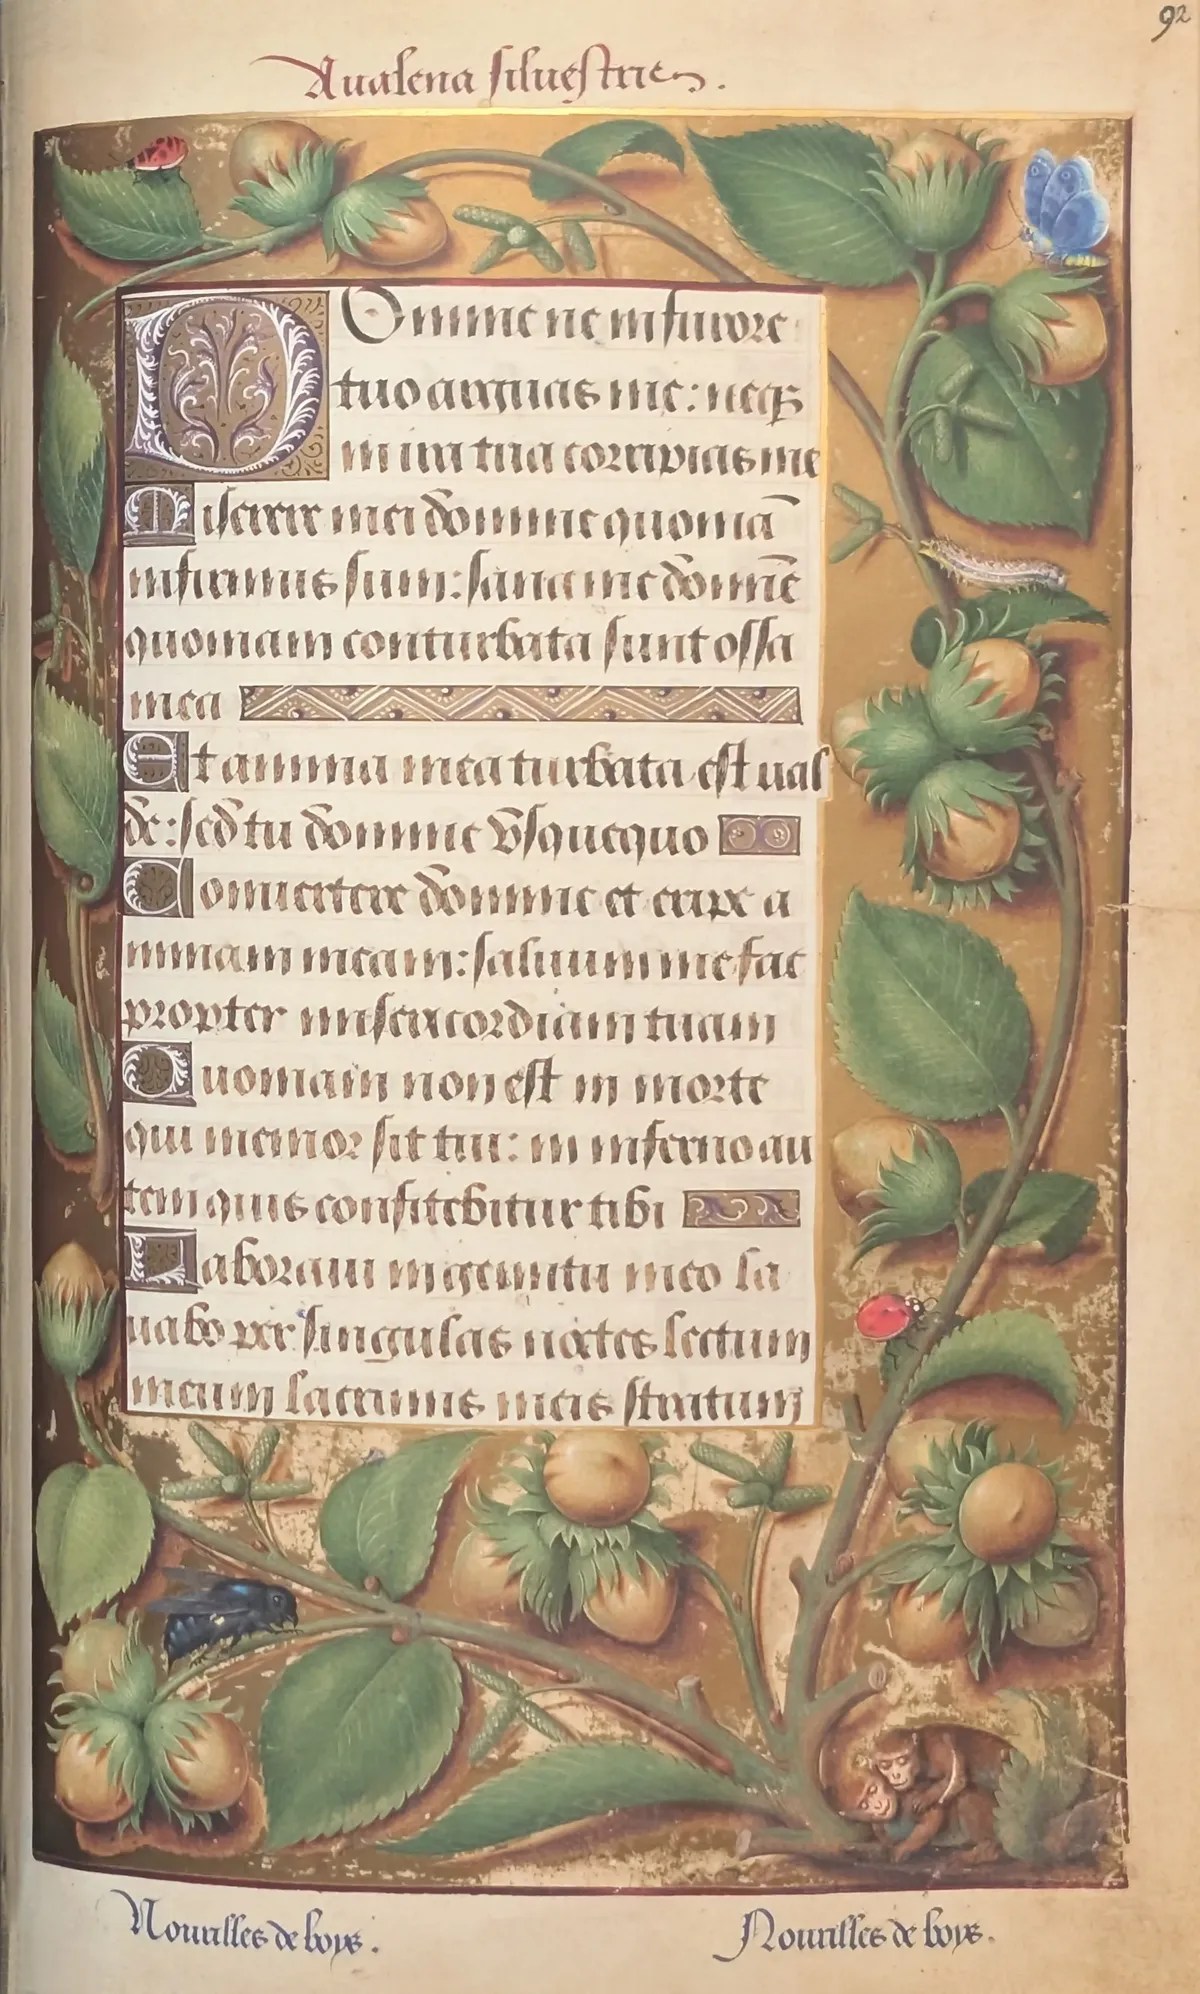 92
Aualena siluestries.
Domine ne in furore
tuo arguas me: neqz
in ira tua corripias me
Miserere mei domine quoniā
infirmus sum: sana me domīe
quoniam conturbata sunt ossa
mea
Et anima mea turbata est ual
de: sed tu domine vsquequo
Conuertere domine et eripe a
nimam meam: saluum me fac
propter misericordiam tuam
Quoniam non est in morte
qui memor sit tui: in inferno au
tem quis confitebitur tibi
Laboraui in gemitu meo la
uabo per singulas noctes lectum
meum lacrimis meis stratum
Nouzilles de boys.
Nouzilles de boys.